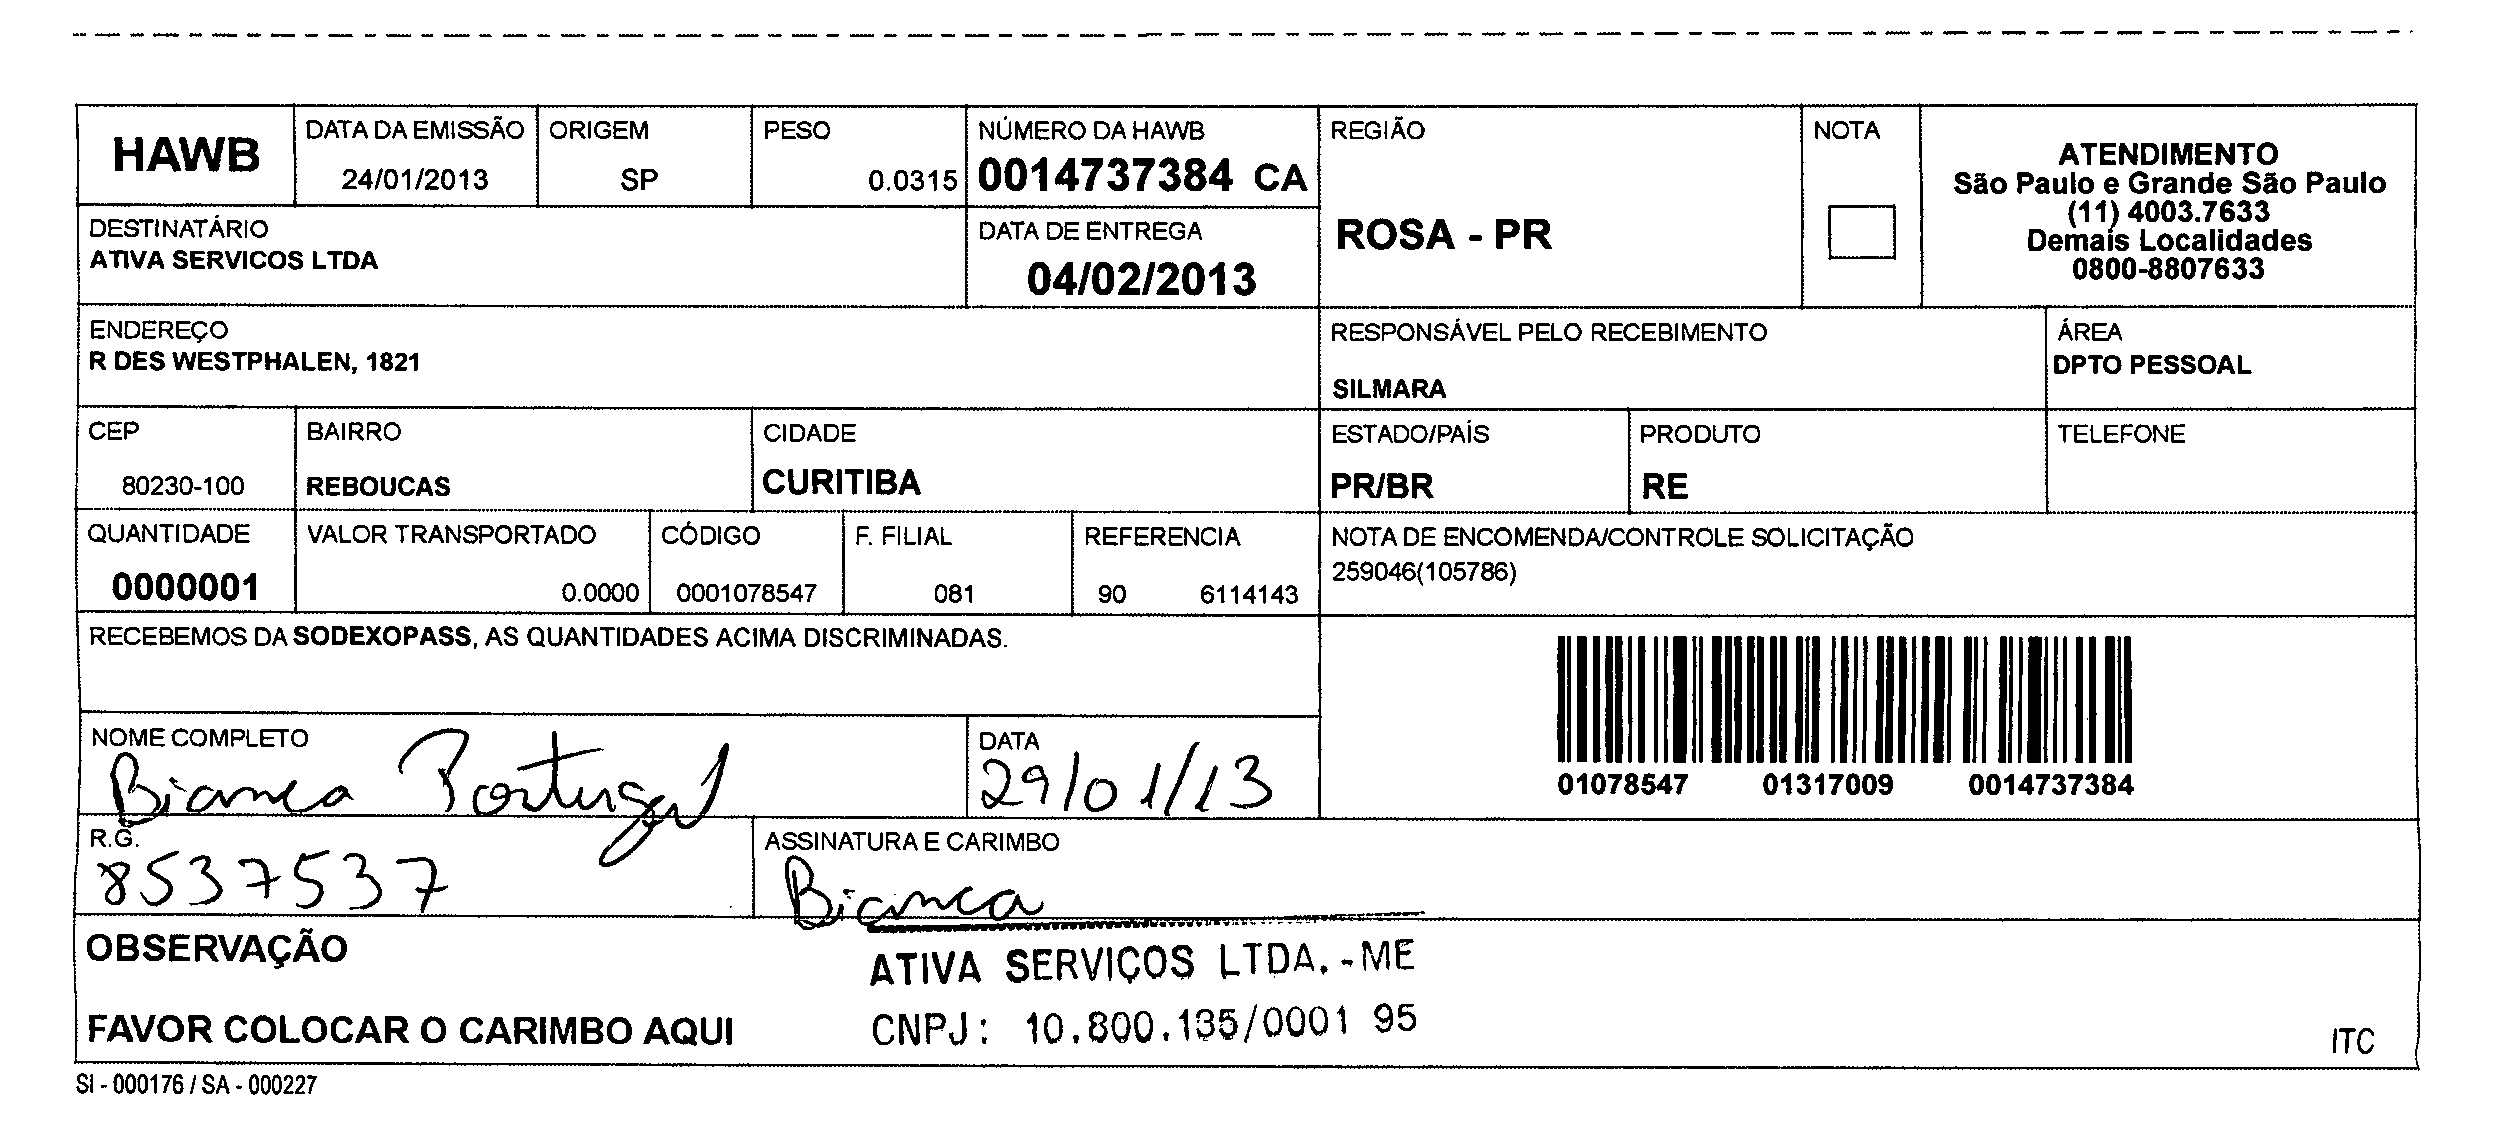 HAWB
DATA DA EMISSÃO
24/01/2013
ORIGEM
SP
PESO
0.0315
NÚMERO DA HAWB
0014737384 CA
REGIÃO
ROSA - PR
NOTA
ATENDIMENTO
São Paulo e Grande São Paulo
(11) 4003.7633
Demais Localidades
0800-8807633
DESTINATÁRIO
ATIVA SERVICOS LTDA
DATA DE ENTREGA
04/02/2013
ENDEREÇO
R DES WESTPHALEN, 1821
RESPONSÁVEL PELO RECEBIMENTO
SILMARA
ÁREA
DPTO PESSOAL
CEP
80230-100
BAIRRO
REBOUCAS
CIDADE
CURITIBA
ESTADO/PAÍS
PR/BR
PRODUTO
RE
TELEFONE
QUANTIDADE
0000001
VALOR TRANSPORTADO
0.0000
CÓDIGO
0001078547
F. FILIAL
081
REFERENCIA
90 6114143
NOTA DE ENCOMENDA/CONTROLE SOLICITAÇÃO
259046(105786)
RECEBEMOS DA SODEXOPASS, AS QUANTIDADES ACIMA DISCRIMINADAS.
01078547 01317009 0014737384
NOME COMPLETO
Bianca Portugal
DATA
29/01/13
R.G.
8537537
ASSINATURA E CARIMBO
Bianca
OBSERVAÇÃO
FAVOR COLOCAR O CARIMBO AQUI
ATIVA SERVIÇOS LTDA.-ME
CNPJ: 10.800.135/0001 95
ITC
SI - 000176 / SA - 000227